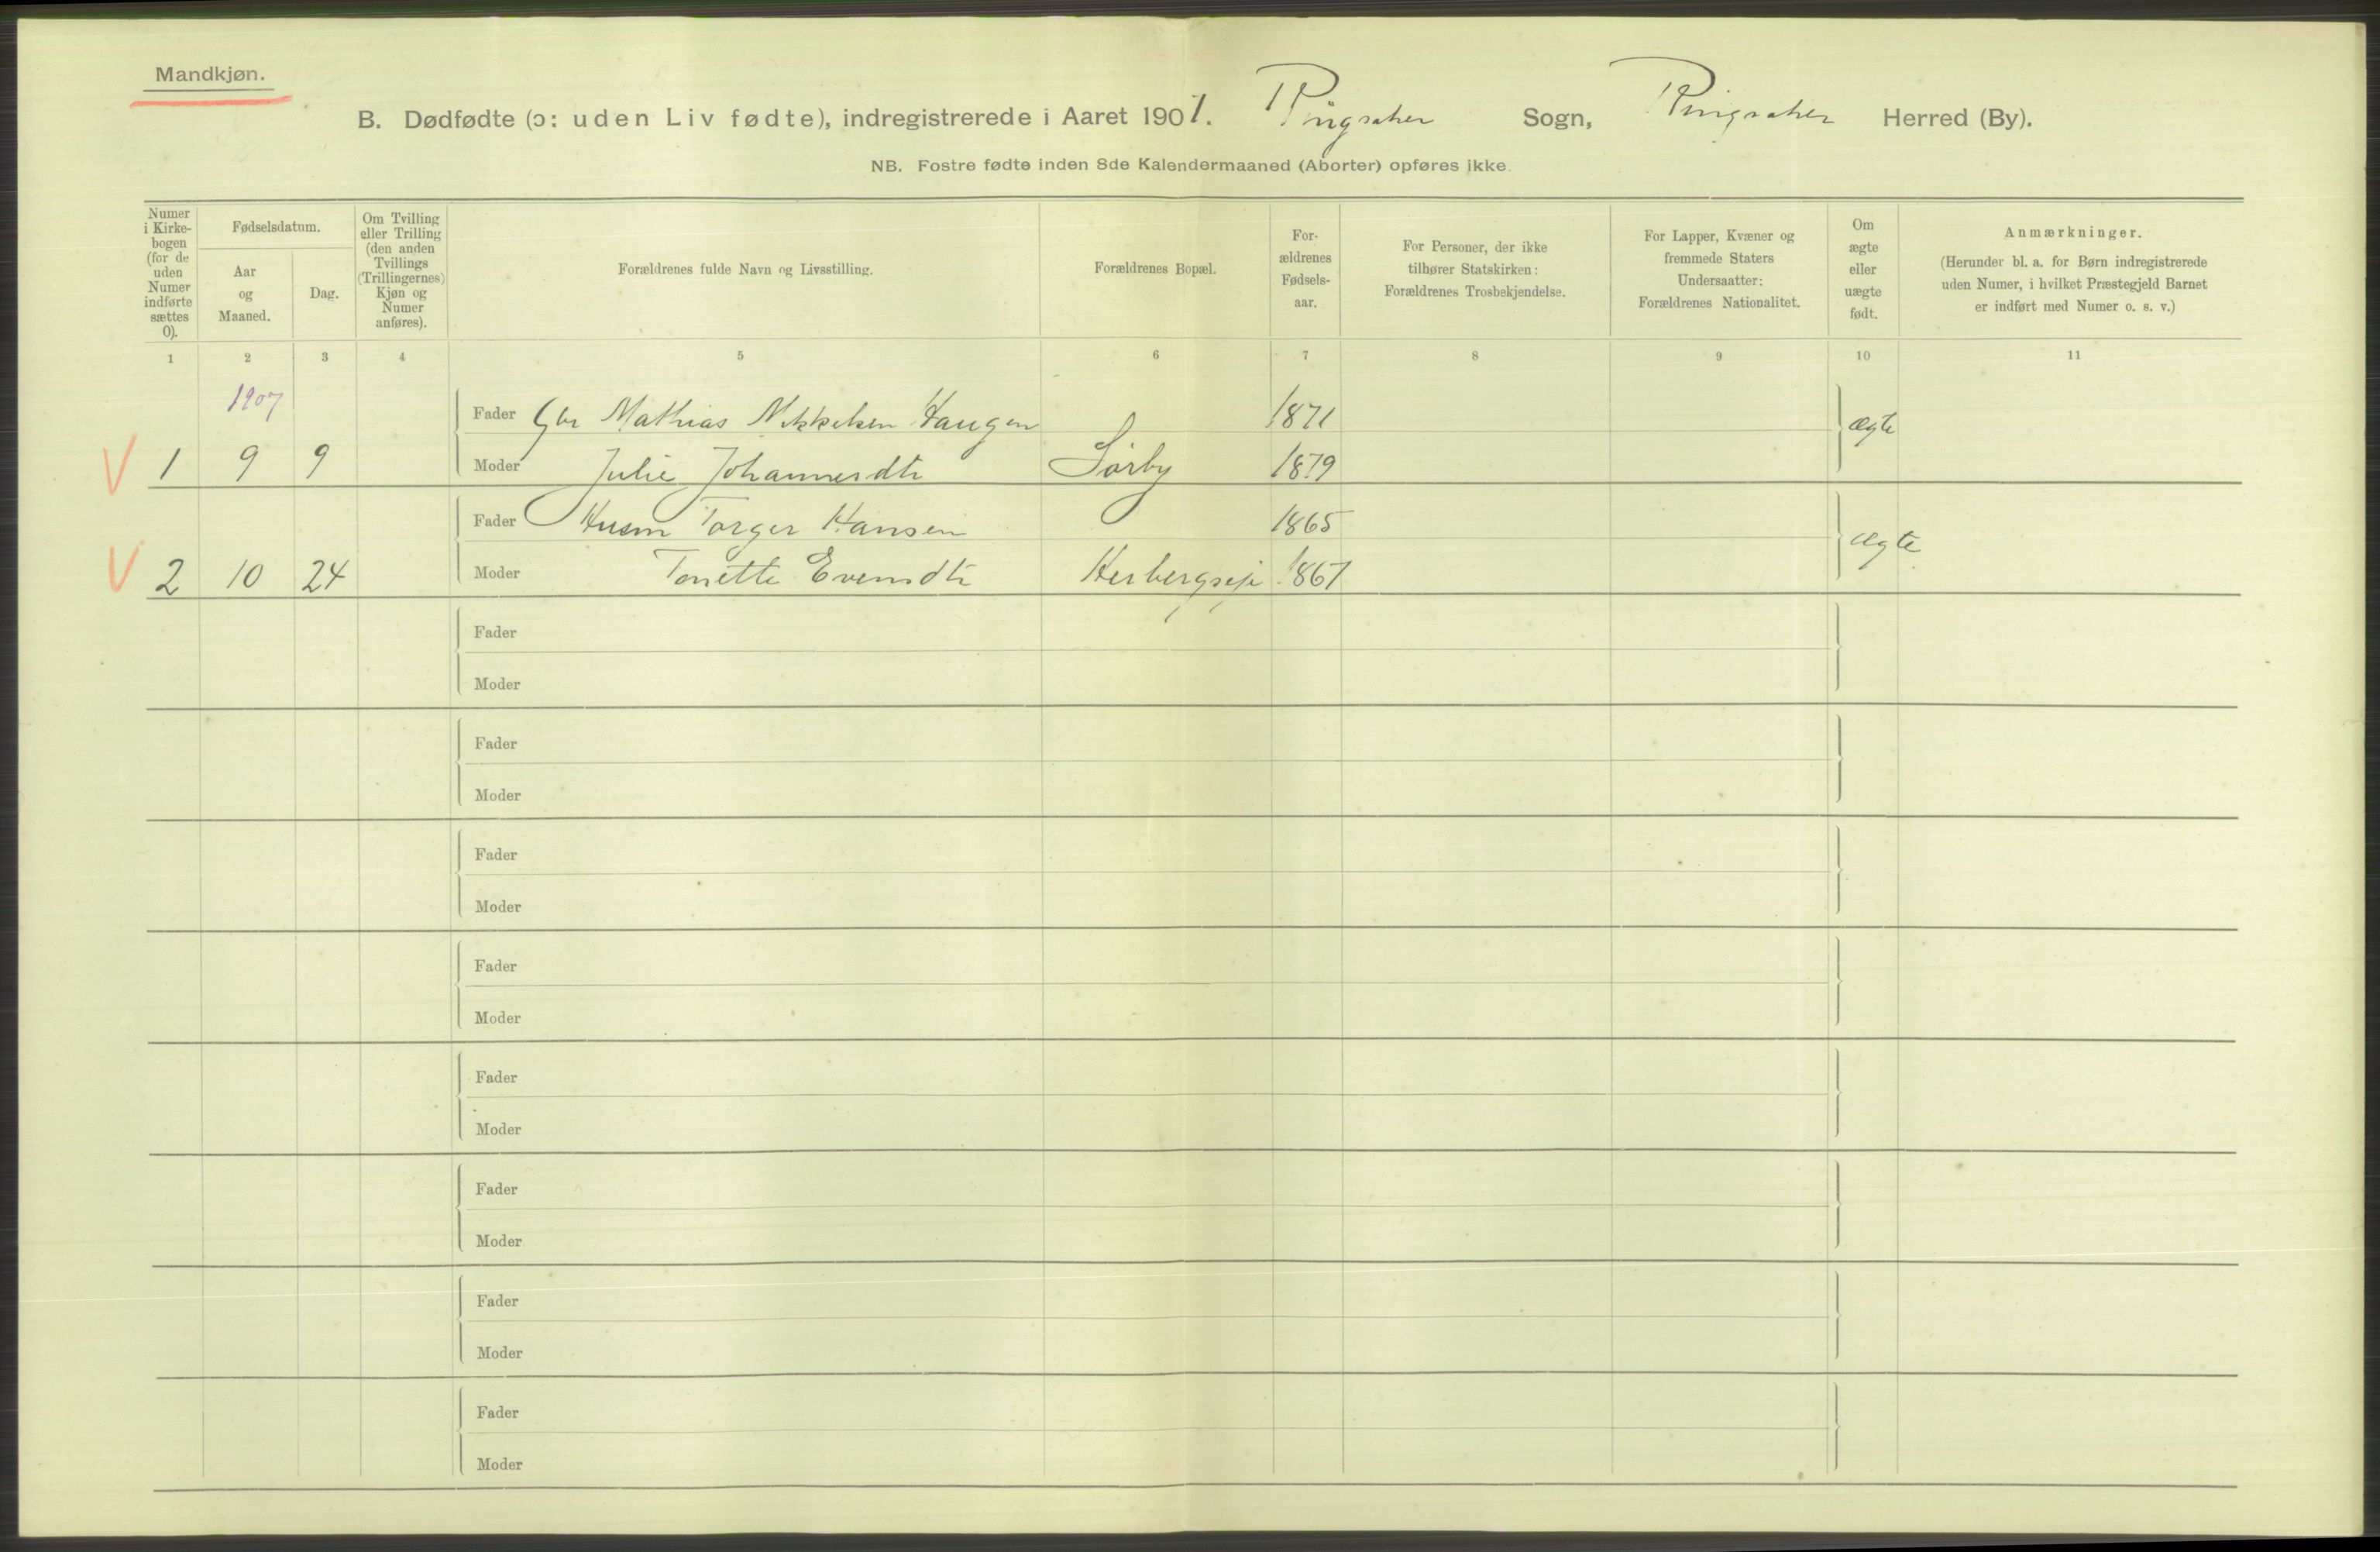 Mandkjøn.
B. Dødfødte (ɔ: uden Liv fødte), indregistrerede i Aaret 1907. Ringsaker Sogn, Ringsaker Herred (By).
NB. Fostre fødte inden 8de Kalendermaaned (Aborter) opføres ikke.
Numer
i Kirke-
bogen
(for de
uden
Numer
indførte
sættes
0).
Fødselsdatum.
Aar
og
Maaned.
Dag.
Om Tvilling
eller Trilling
(den anden
Tvillings
(Trillingernes)
Kjøn og
Numer
anføres).
Forældrenes fulde Navn og Livsstilling.
Forældrenes Bopæl.
For-
ældrenes
Fødsels-
aar.
For Personer, der ikke
tilhører Statskirken:
Forældrenes Trosbekjendelse.
For Lapper, Kvæner og
fremmede Staters
Undersaatter:
Forældrenes Nationalitet.
Om
ægte
eller
uægte
født.
Anmærkninger.
(Herunder bl. a. for Børn indregistrerede
uden Numer, i hvilket Præstegjeld Barnet
er indført med Numer o. s. v.)
1 2 3 4 5 6 7 8 9 10 11
1907
Fader Gbr Mathias Mikkelsen Haugen 1871 ægte
V 1 9 9 Moder Julie Johannesdtr Sørby 1879
Fader Husm Torger Hansen 1865 ægte
V 2 10 24 Moder Tonette Evensdtr 1867
Fader
Moder
Fader
Moder
Fader
Moder
Fader
Moder
Fader
Moder
Fader
Moder
Fader
Moder
Fader
Moder